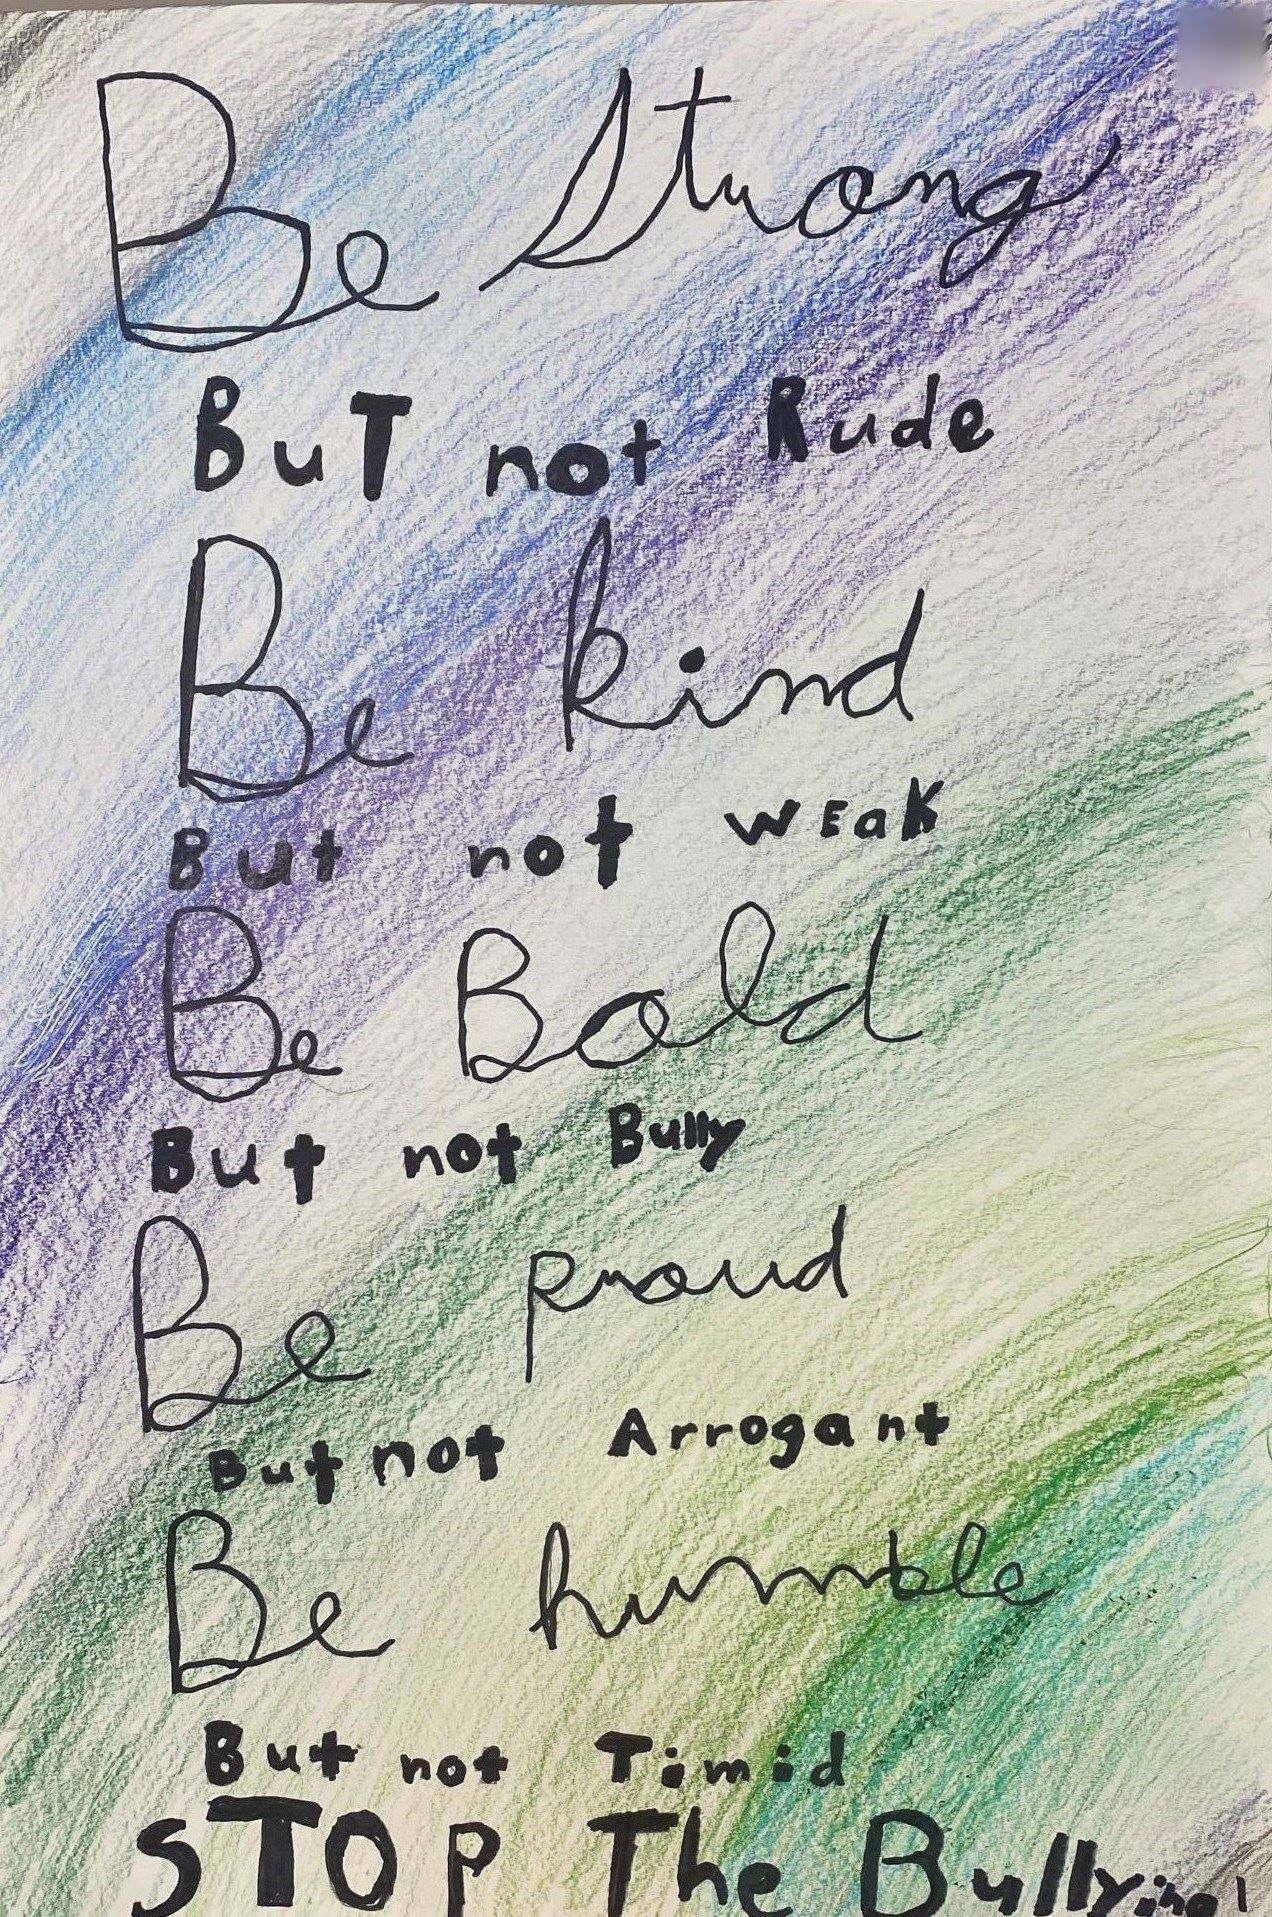 Be Strong
BuT not Rude
Be kind
But not wEaK
Be Bold
But not Bully
Be proud
But not Arrogant
Be humble
But not Timid
STOP The Bullying!